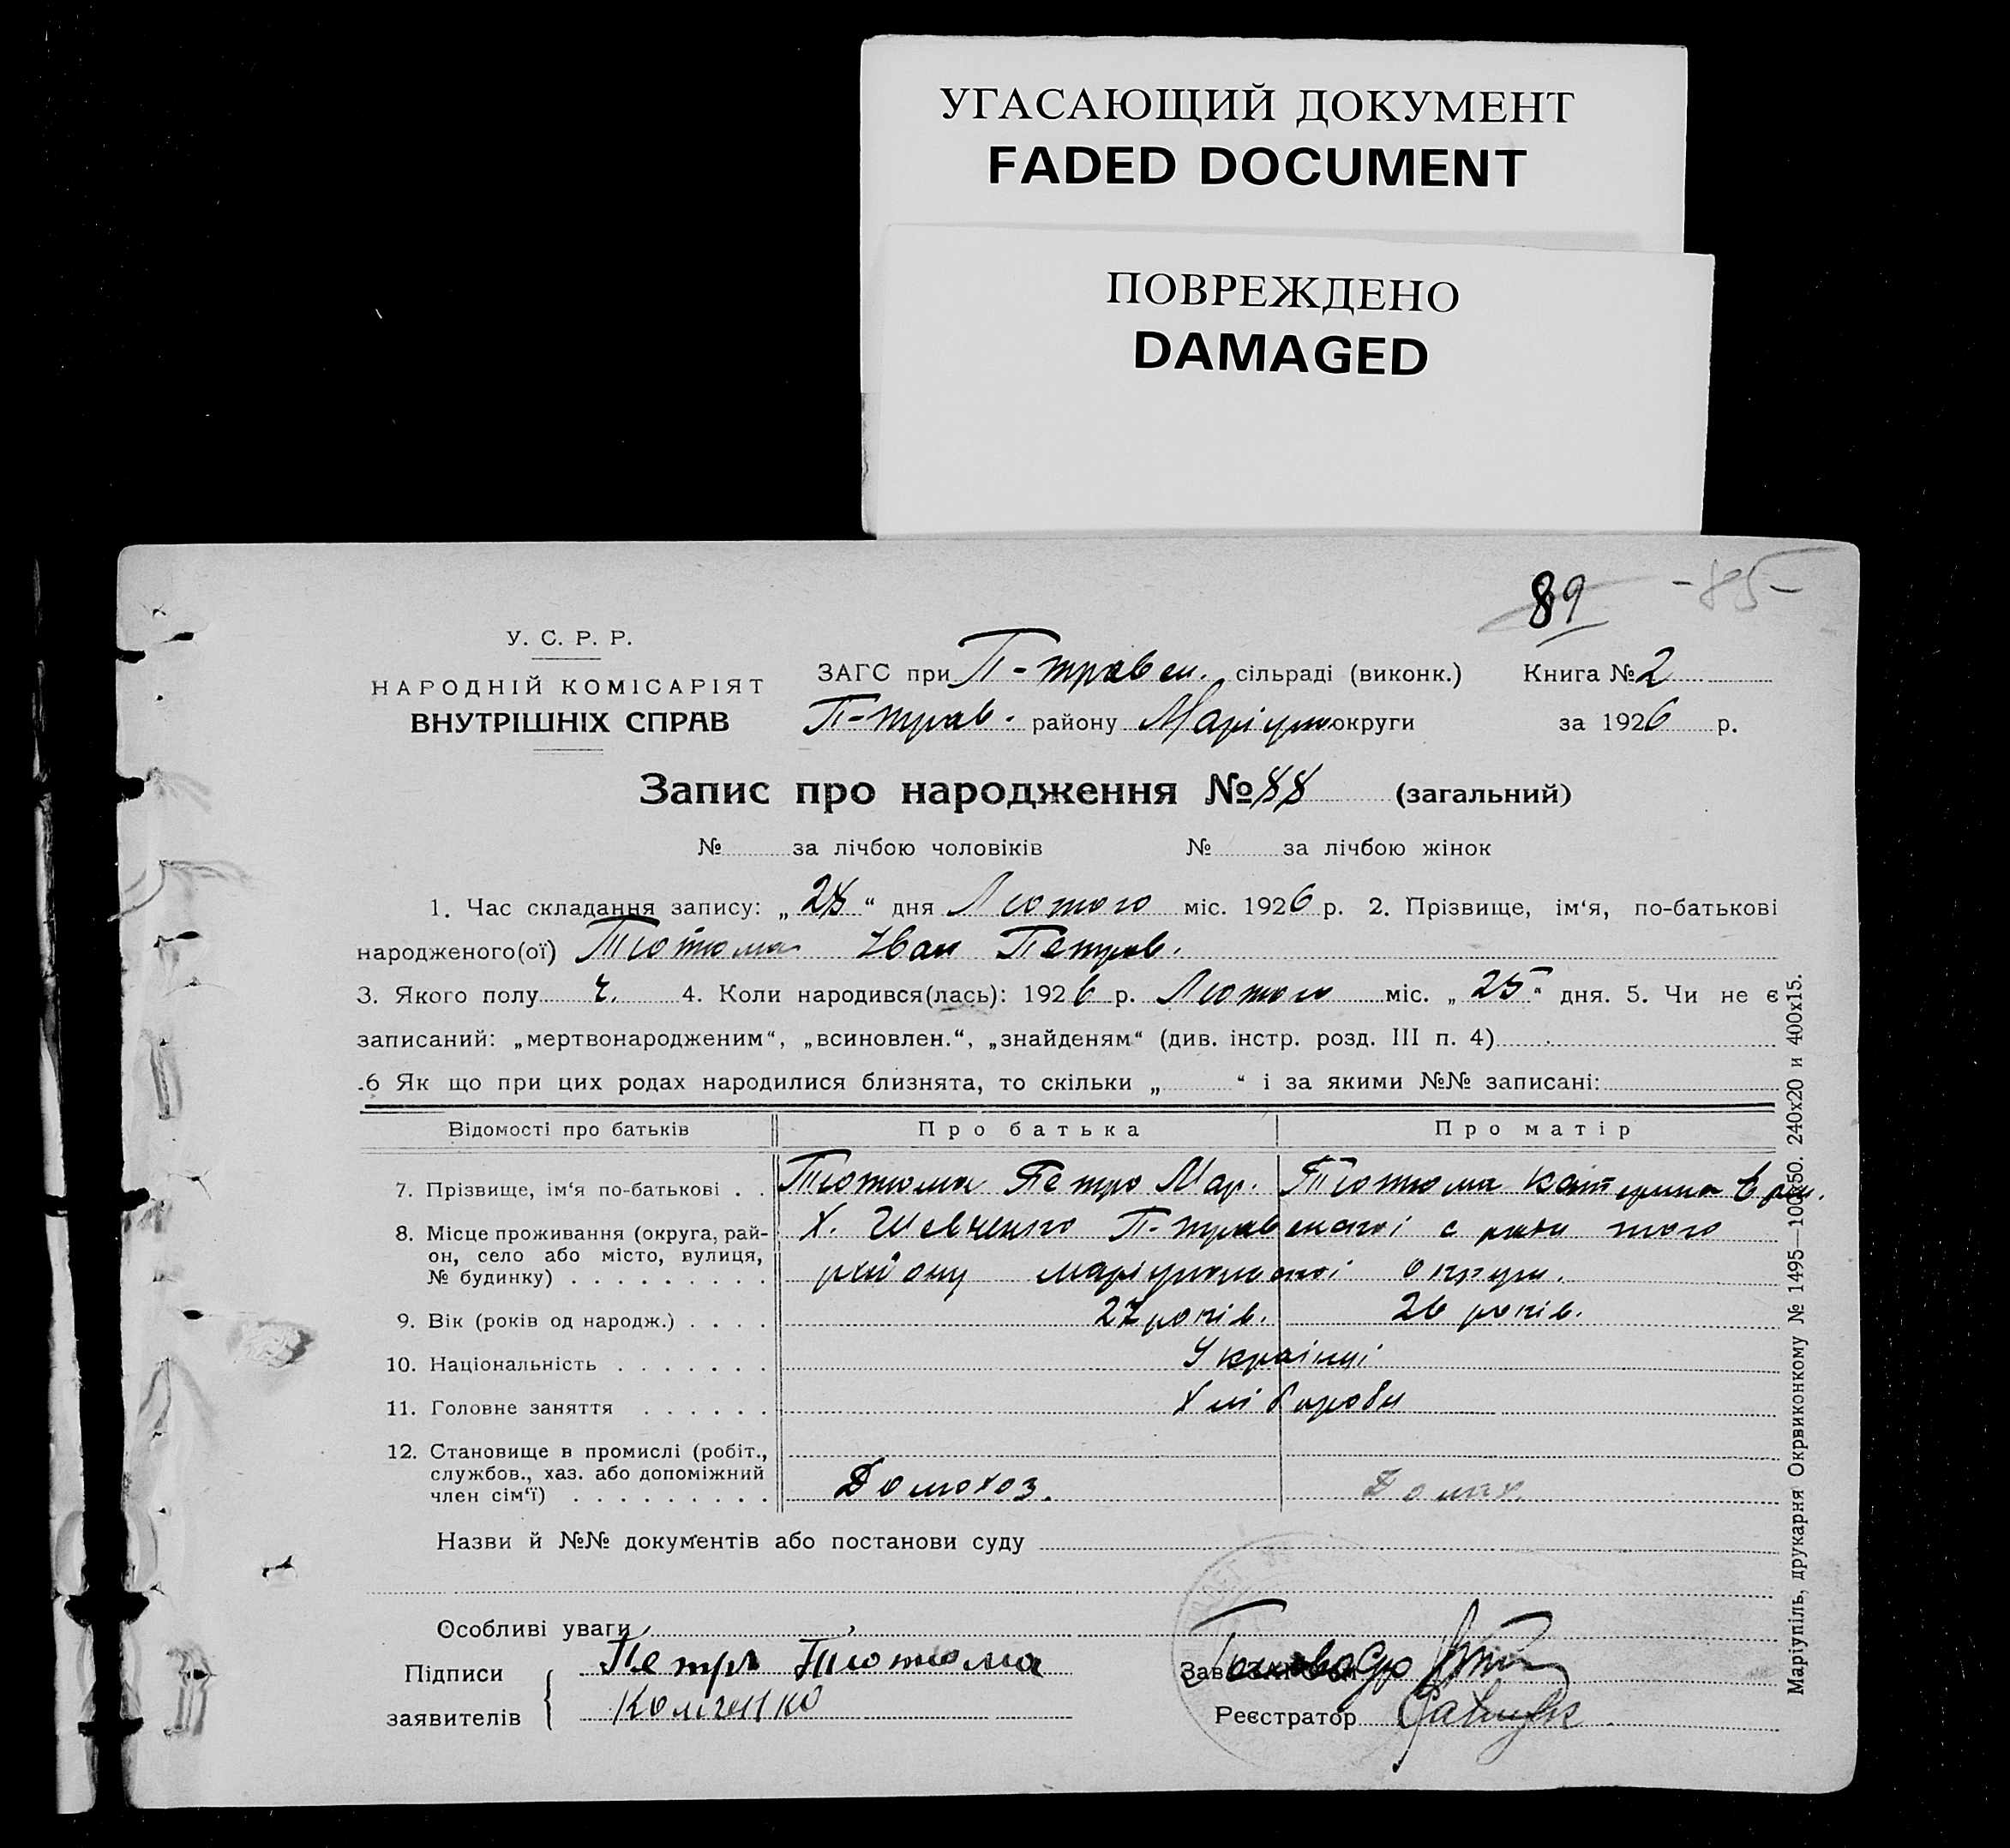 УГАСАЮЩИЙ ДОКУМЕНТ
FADED DOCUMENT
ПОВРЕЖДЕНО
DAMAGED
89 -85-
У. С. Р. Р.
НАРОДНІЙ КОМІСАРІЯТ
ВНУТРІШНІХ СПРАВ
ЗАГС при П-травен. сільраді (виконк.) Книга № 2
П-трав. району Маріуп округи за 1926 р.
Запис про народження № 88 (загальний)
№ за лічбою чоловіків № за лічбою жінок
1. Час складання запису: „28“ дня Лютого міс. 1926 р. 2. Прізвище, ім‘я, по-батькові
народженого(ої) Тютюма Іван Петров.
3. Якого полу ч. 4. Коли народився(лась): 1926 р. Лютого міс. „25“ дня. 5. Чи не є
записаний: „мертвонародженим“, „всиновлен.“, „знайденям“ (див. інстр. розд. III п. 4)
.6 Як що при цих родах народилися близнята, то скільки „ “ і за якими №№ записані:
Відомості про батьків Про батька Про матір
7. Прізвище, ім‘я по-батькові . . Тютюма Петро Мар. Тютюма Катерина
8. Місце проживання (округа, рай-
он, село або місто, вулиця,
№ будинку) . . . . . . . . .
Х. Шевченко П-травенської с ради того
району маріупольської округи.
9. Вік (років од народж.) . . . . 27 років. 26 років.
10. Національність . . . . . . . Українці
11. Головне заняття . . . . . . Хлібороби
12. Становище в промислі (робіт.,
службов., хаз. або допоміжний
член сім‘ї) . . . . . . . . .
Домохоз. Домах.
Назви й №№ документів або постанови суду
Особливі уваги
Підписи Петро Тютюма
заявителів Комченко
Реєстратор
Маріупіль, друкарня Окрвиконкому № 1495—100х50. 240х20 и 400х15.